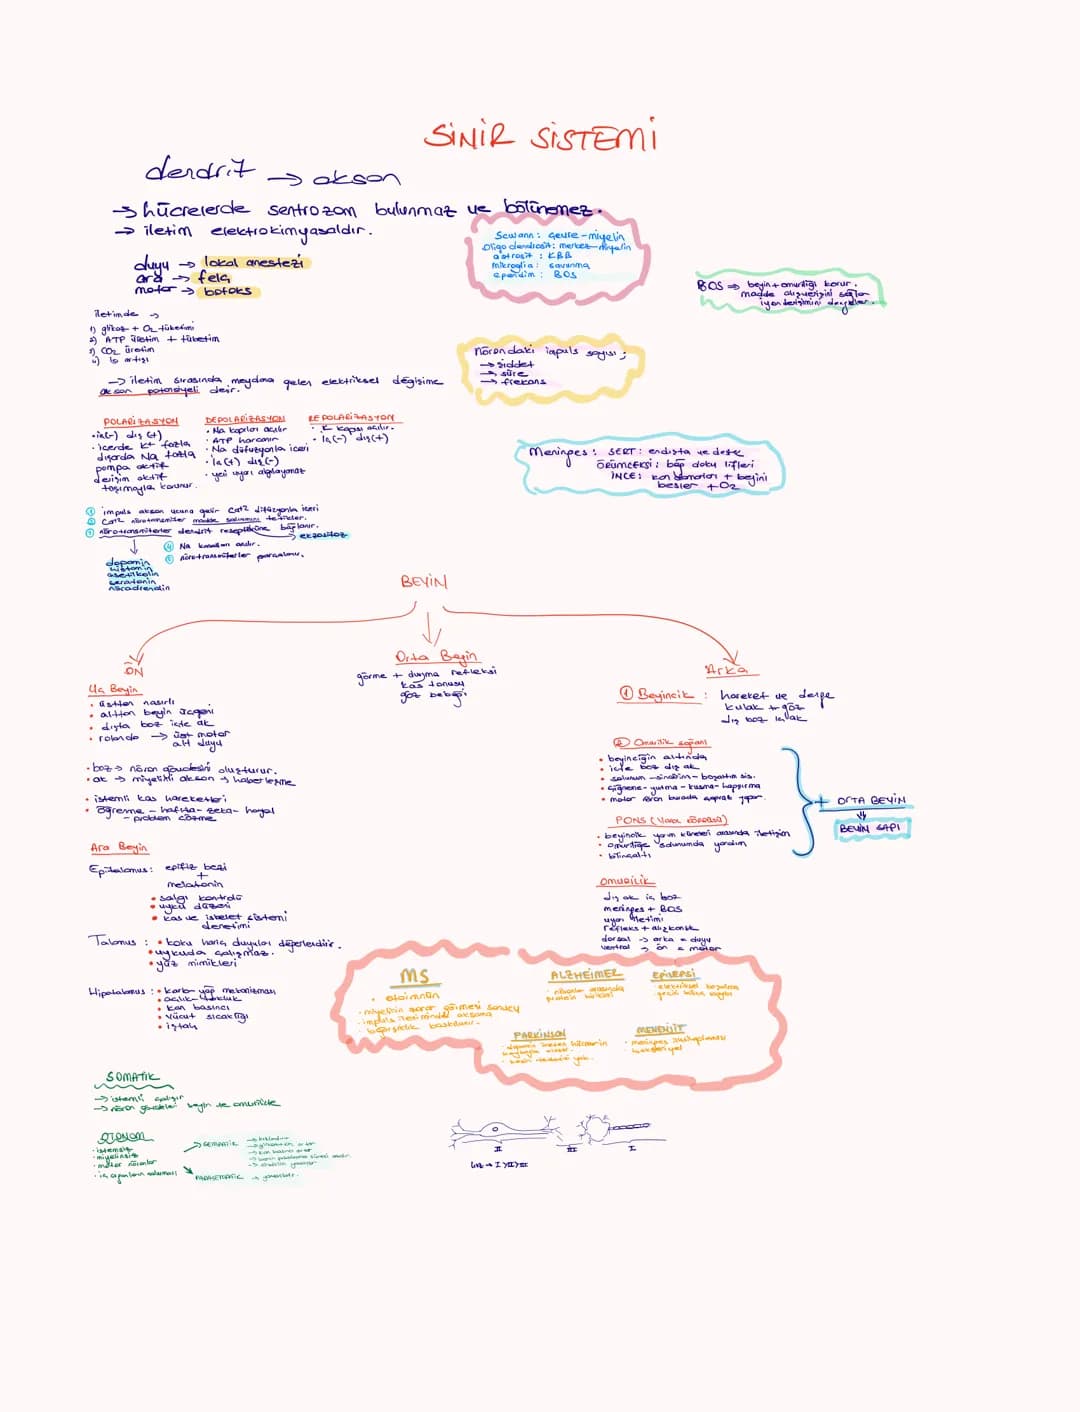 SİNİR SİSTEMİ
dendrit → akson
→ hücrelerde sentrozom bulunmaz ve bölünemez.
→ iletim elektrokimyasaldır.
duyu → lokal anestezi
ara → felç
motor → botoks
Schwann: çevre-miyelin
Oligodendrosit: merkez-miyelin
astrosit: KBB
mikroglia: savunma
ependim: BOS
BOS ⇒ beyin + omuriliği korur.
madde alışverişini sağlar
iyon derişimini dengeler.
iletimde →
1) glikoz + O₂ tüketimi
2) ATP üretim + tüketim
3) CO₂ üretim
4) ısı artışı
→ iletim sırasında meydana gelen elektriksel değişime
akson potansiyeli denir.
Nörondaki impuls sayısı;
→ şiddet
→ süre
→ frekans
POLARİZASYON
• iç(-) dış (+)
• içerde K+ fazla
dışarda Na fazla
pompa aktif
derişim aktif
taşımayla korunur.
DEPOLARİZASYON
• Na kapıları açılır
• ATP harcanır
• Na difüzyonla içeri
• iç(+) dış(-)
• yeni uyarı algılayamaz
REPOLARİZASYON
• K kapısı açılır.
• iç(-) dış(+)
Meninges: SERT: endışta ve destek
ÖRÜMCEKSİ: bağ doku lifleri
İNCE: kan damarları + beyini
besler + O2
① impuls akson ucuna gelir Ca+2 difüzyonla içeri
② Ca+2 nörotransmitter madde salınımını tetikler.
③ nörotransmiterler dendrit reseptörüne bağlanır.
→ ekzositoz
④ Na kanalları açılır.
⑤ nörotransmiterler parçalanır.
dopamin
histamin
asetilkolin
seratonin
nöradrenalin
BEYİN
ÖN
Uç Beyin
• üstten nasırlı
• alttan beyin üçgeni
• dışta boz içte ak
• rolando → üst motor
alt duyu
• boz → nöron gövdesini oluşturur.
• ak → miyelinli akson → haberleşme
• istemli kas hareketleri
• öğrenme - hafıza - zeka - hayal
- problem çözme
Ara Beyin
Epitalamus: epifiz bezi
+
melatonin
• salgı kontrolü
• uyku düzeni
• kas ve iskelet sistemi
denetimi
Talamus: • koku hariç duyuları değerlendirir.
• uykuda çalışmaz.
• yüz mimikleri
Hipotalamus: • karb-yağ mekanizması
• açlık-tokluk
• kan basıncı
• vücut sıcaklığı
• iştah
Orta Beyin
görme + duyma refleksi
kas tonusu
göz bebeği
Arka
① Beyincik: hareket ve denge
kulak + göz
dış boz iç ak
② Omurilik soğanı
• beyinciğin altında
• içte boz dış ak
• solunum - sindirim - boşaltım sis.
• çiğneme - yutma - kusma - hapşırma
• motor nöron burada çapraz yapar.
PONS (Varol köprüsü)
• beyincik yarım küreleri arasında iletişim
• omuriliğe solunumda yardım
• bilinçaltı
+ ORTA BEYİN
⇓
BEYİN SAPI
OMURİLİK
dış ak iç boz
meninges + BOS
uyarı iletimi
refleks + alışkanlık
dorsal → arka = duyu
ventral → ön = motor
MS
• otoimmün
• miyelinin zarar görmesi sonucu
• impuls iletiminde aksama
• bağışıklık baskılanır.
ALZHEİMER
• nöronlar arasında
protein birikimi
EPİLEPSİ
• elektriksel boşalma
PARKİNSON
• dopamin üreten hücrelerin
MENENJİT
• meninges iltihaplanması
bakteriyel
SOMATİK
→ istemli çalışır
→ nöron gövdeleri beyin ve omurilikte
OTONOM
• istemsiz
• miyelinsiz
• motor nöronlar
• iç organların çalışması
→ SEMPATİK
→ hızlandırır
→ kan basıncı artar
→ PARASEMPATİK → yavaşlatır.
II
III
I
hız → I>II>III